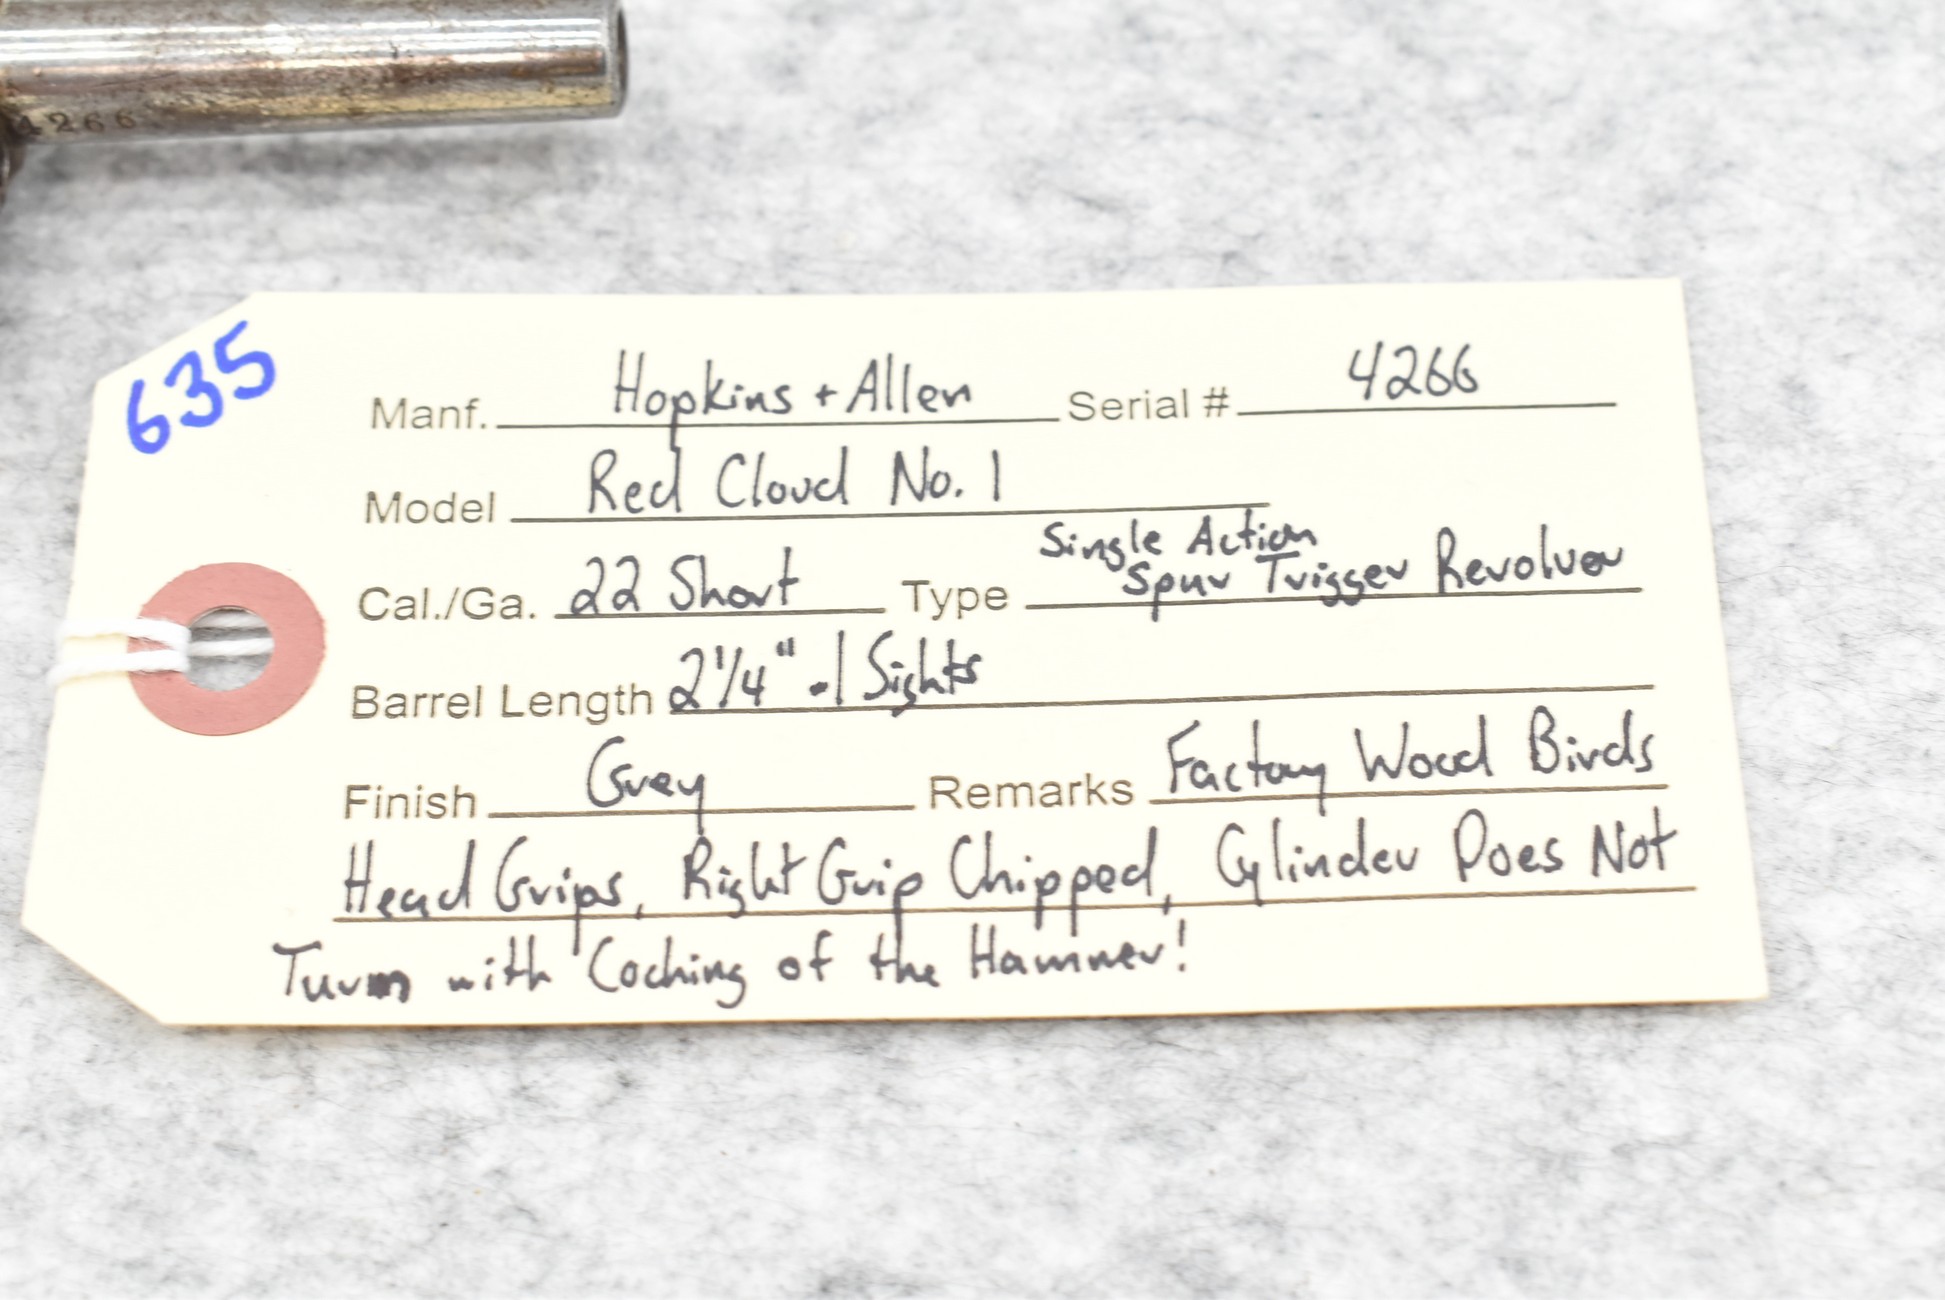 4266
635
Manf. Hopkins + Allen Serial # 4266
Model Red Cloud No. 1
Cal./Ga. 22 Short Type Single Action
Spur Trigger Revolver
Barrel Length 2 1/4" w/ Sights
Finish Grey Remarks Factory Wood Birds
Head Grips, Right Grip Chipped, Cylinder Does Not
Turn with Cocking of the Hammer!